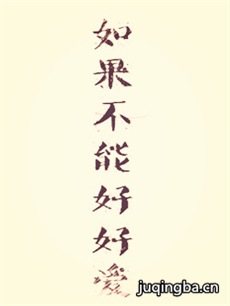 如果不能好好爱
juqingba.cn